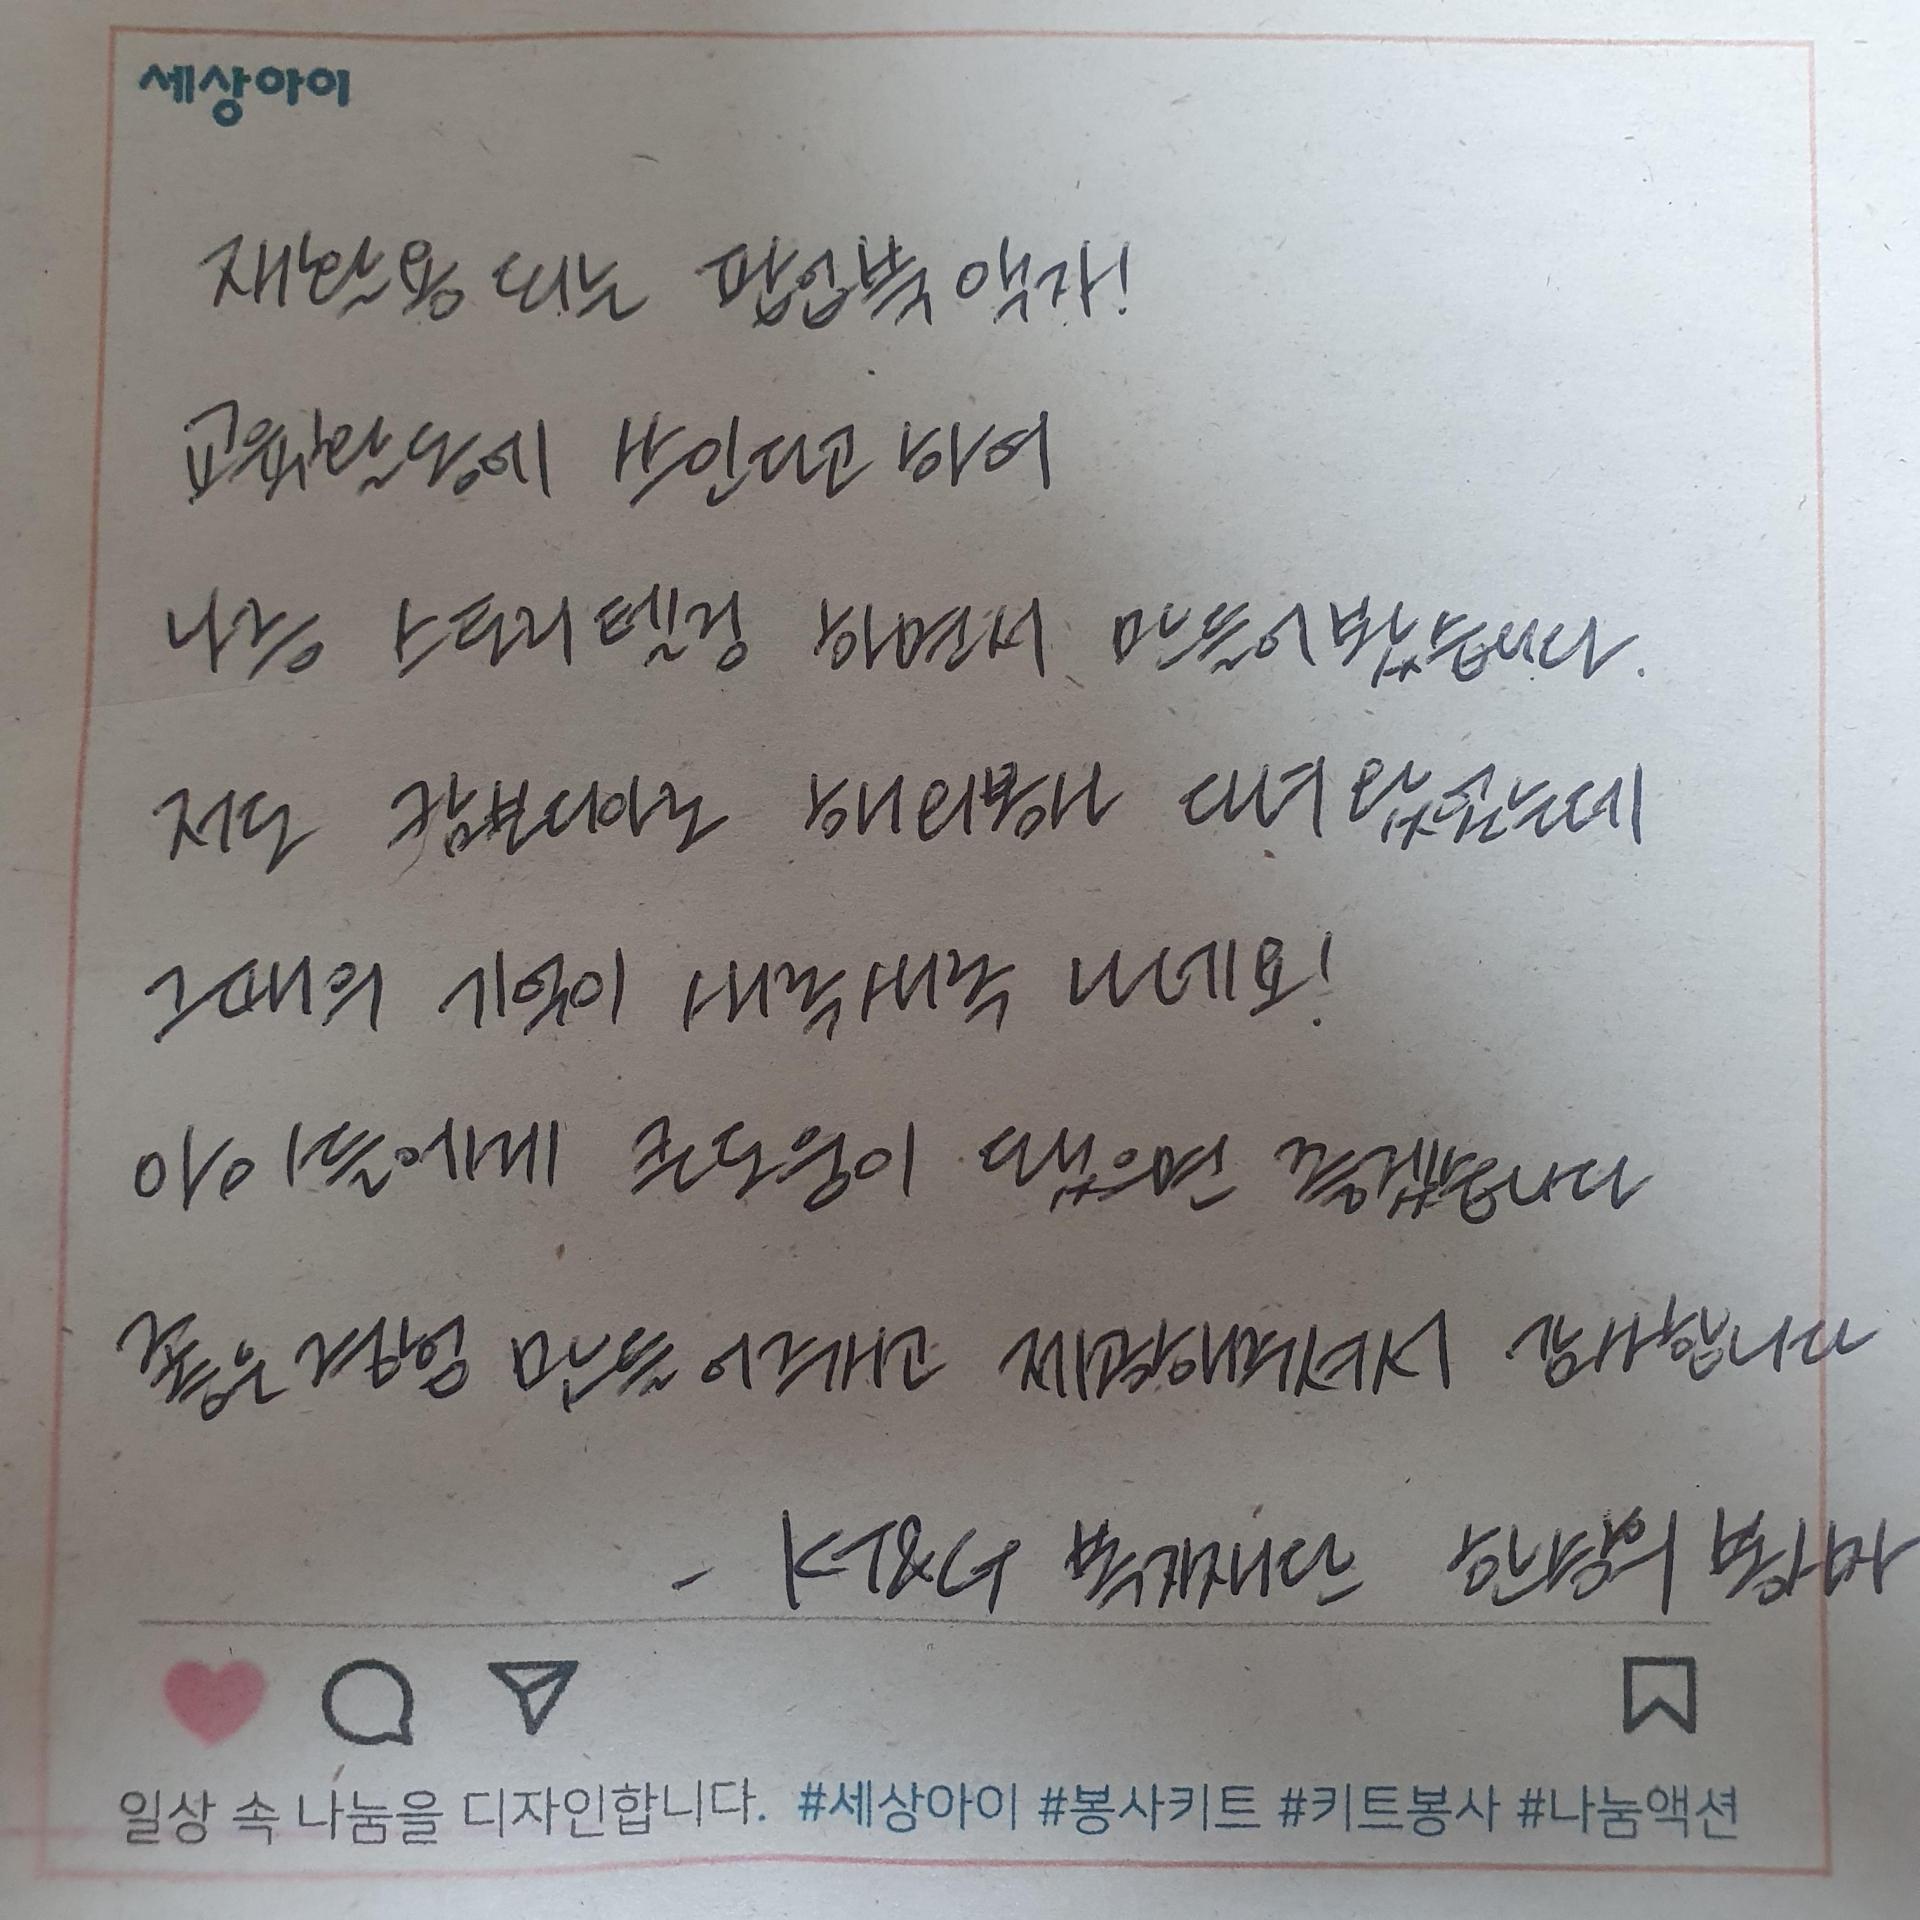 세상아이
재활용 되는 팝업북 액자!
교육활동에 쓰인다고 하여
나름 스토리텔링 하면서 만들어봤습니다.
저도 캄보디아로 해외봉사 다녀왔었는데
그때의 기억이 새록새록 나네요!
아이들에게 큰 도움이 됐으면 좋겠습니다
좋은 경험 만들어주시고 제공해주셔서 감사합니다
- KT&G 복지재단 봉사자
일상 속 나눔을 디자인합니다. #세상아이 #봉사키트 #키트봉사 #나눔액션